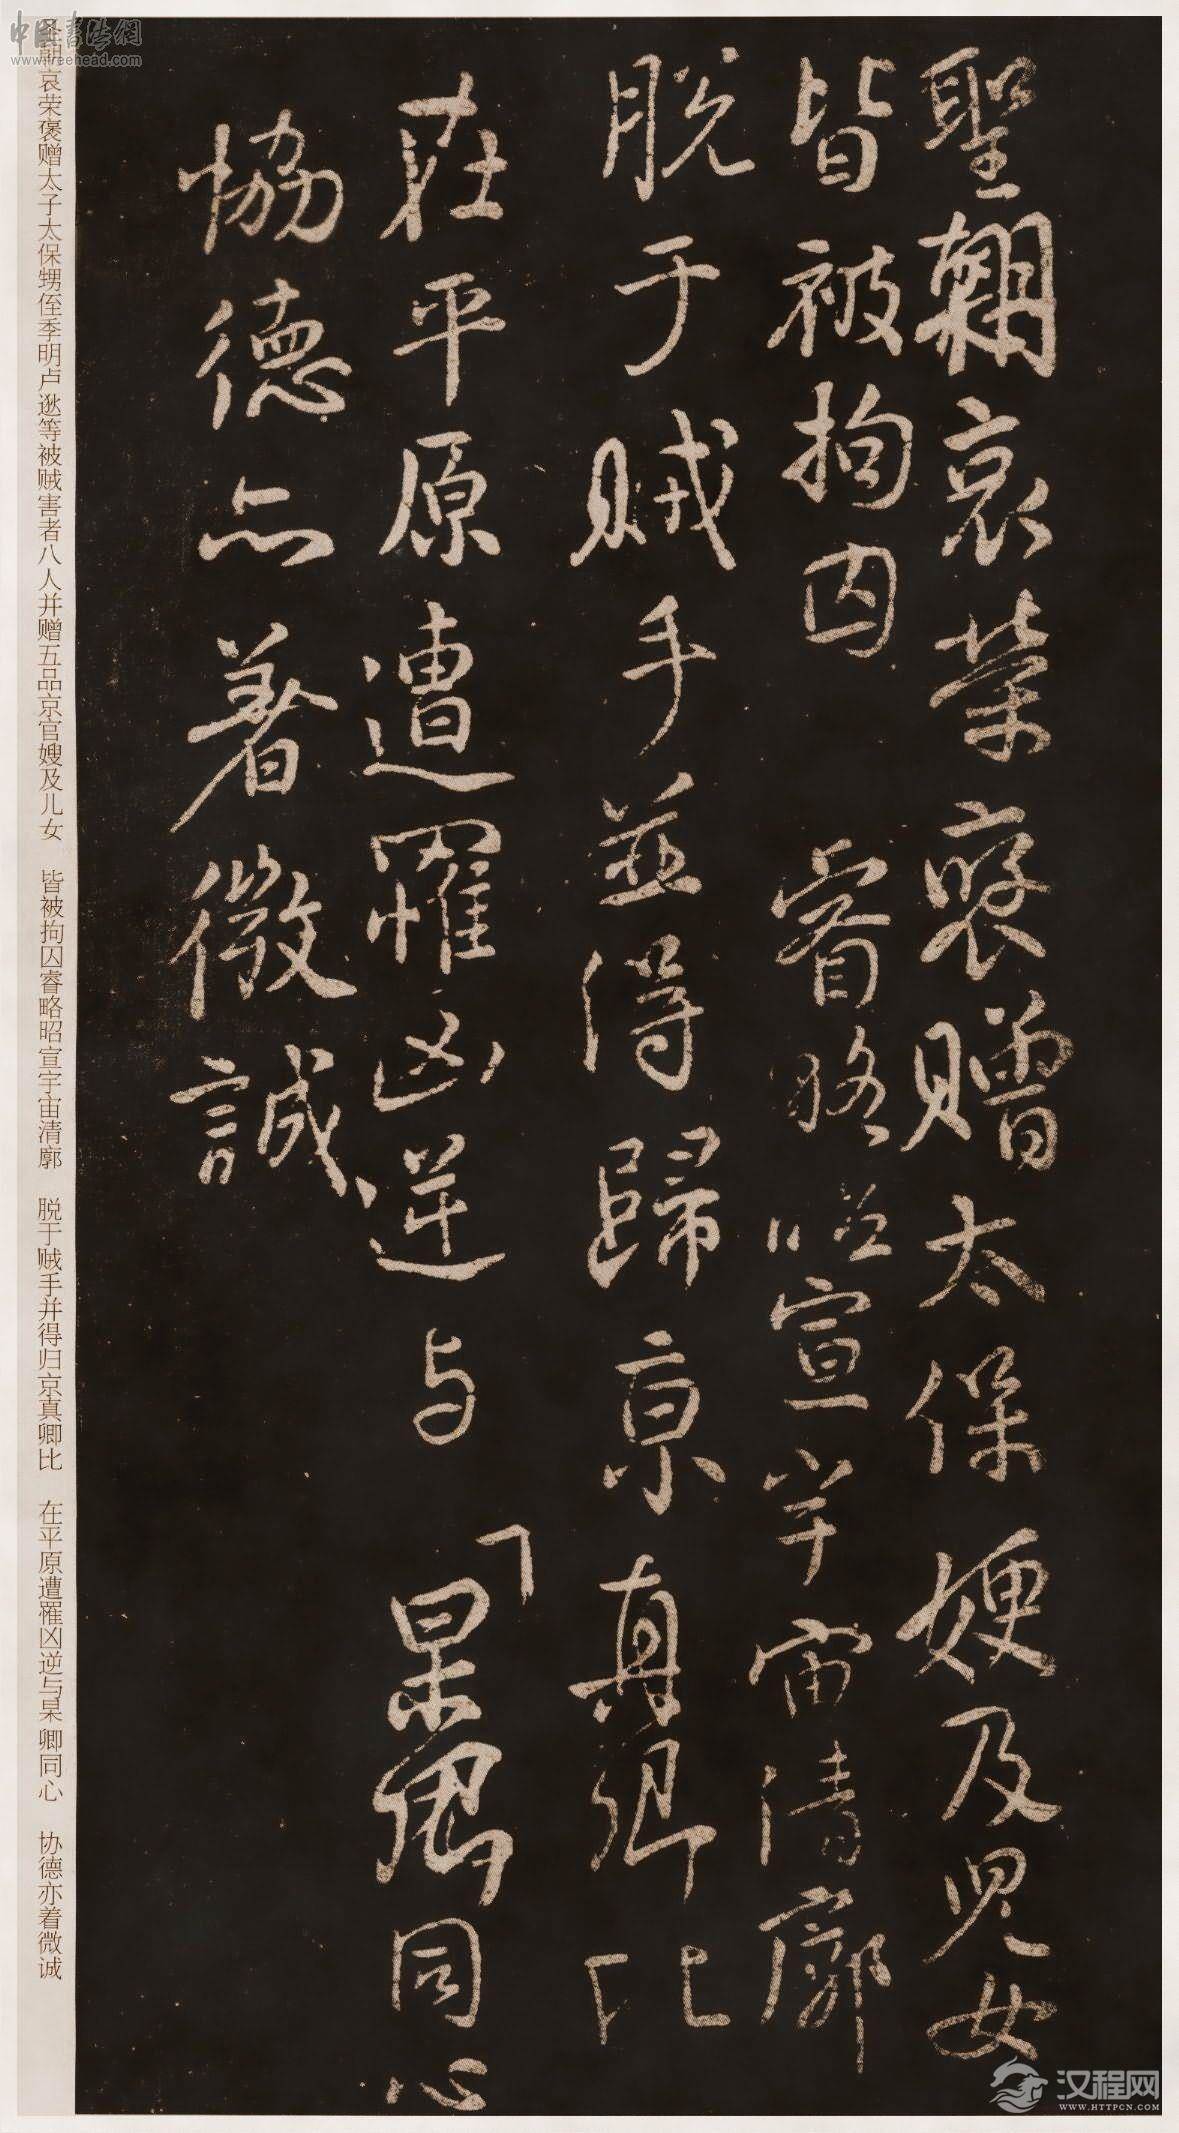 聖朝哀榮褒贈太保嫂及児女
皆被拘囚 睿略昭宣宇宙清廓
脱于贼手並得歸京真卿比
在平原遭罹凶逆与杲卿同心
協德亦著微誠
圣朝哀荣褒赠太子太保甥侄季明卢逖等被贼害者八人并赠五品京官嫂及儿女 皆被拘囚睿略昭宣宇宙清廓 脱于贼手并得归京真卿比 在平原遭罹凶逆与杲卿同心 协德亦着微诚
中国书法网
www.freehead.com
汉程网
WWW.HTTPCN.COM